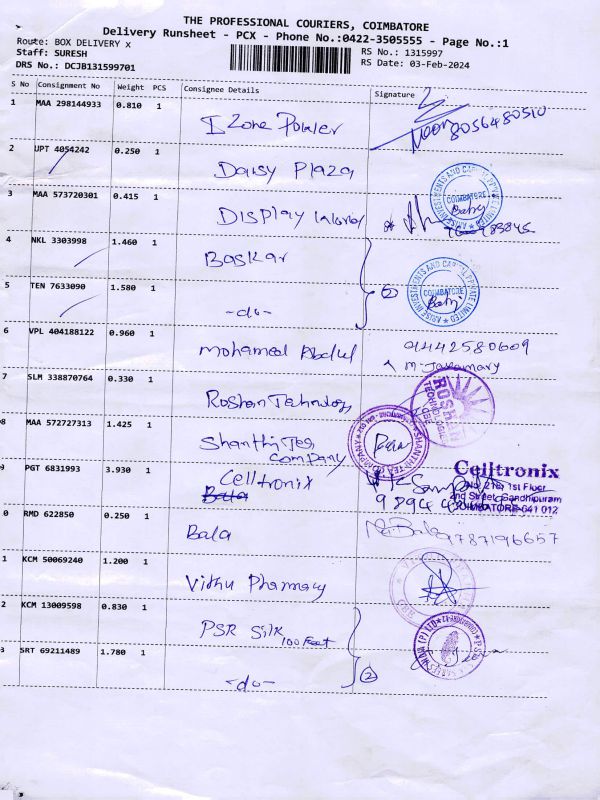 THE PROFESSIONAL COURIERS, COIMBATORE
Delivery Runsheet - PCX - Phone No.:0422-3505555 - Page No.:1
Route: BOX DELIVERY x
Staff: SURESH
RS No.: 1315997
DRS No.: DCJB131599701
RS Date: 03-Feb-2024
S No Consignment No Weight PCS Consignee Details Signature
1 MAA 298144933 0.810 1 I Zone Power 8056480510
2 UPT 4054242 0.250 1 Daisy Plaza
3 MAA 573720301 0.415 1 Display
ARISE INVESTMENTS AND CAPITAL PRIVATE LIMITED
COIMBATORE
4 NKL 3303998 1.460 1 Baskar
5 TEN 7633090 1.580 1 -do- 2
ARISE INVESTMENTS AND CAPITAL PRIVATE LIMITED
COIMBATORE
6 VPL 404188122 0.960 1 Mohamed Abdul 9442580609
7 SLM 338870764 0.330 1 Roshan Technology
ROSHAN
TECHNOLOGIES
8 MAA 572727313 1.425 1 Shanthi Tea Company
SHANTHI TEA COMPANY
9 PGT 6831993 3.930 1 Celltronix
Bala
Celltronix
1st Floor
Street, Gandhipuram
COIMBATORE-641 012
0 RMD 622850 0.250 1 Bala 9787196657
1 KCM 50069240 1.200 1 Vishu Pharmacy
2 KCM 13009598 0.830 1 PSR Silk 100 Feet
3 SRT 69211489 1.780 1 -do- 2